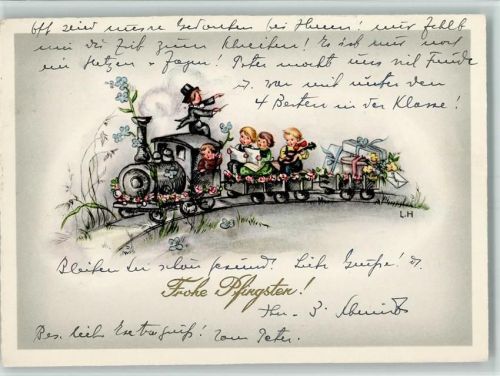 Oft sind unsere Gedanken bei Ihnen! nur fehlt
mir die Zeit zum Schreiben! Es ist nur noch
ein Hetzen + Jagen! Peter macht uns viel Freude
war mit unter den
4 Besten in der Klasse!
L.H
Bleiben Sie schön gesund! Liebe Grüße!
Frohe Pfingsten!
Ihr
Bes. liebe Extragrüße! vom Peter.